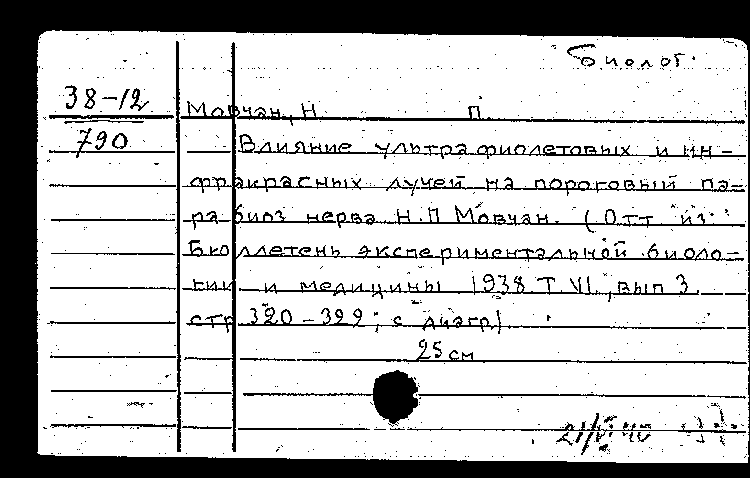 Биолог.
38-12
790
Мовчан, Н. П.
Влияние ультрафиолетовых и ин-
фракрасных лучей на пороговый па-
рабиоз нерва Н.П Мовчан. (Отт из:
Бюллетень экспериментальной биоло-
гии и медицины 1938 Т. VI, вып 3.
стр 320-322; с диагр)
25 см
21/VI 40